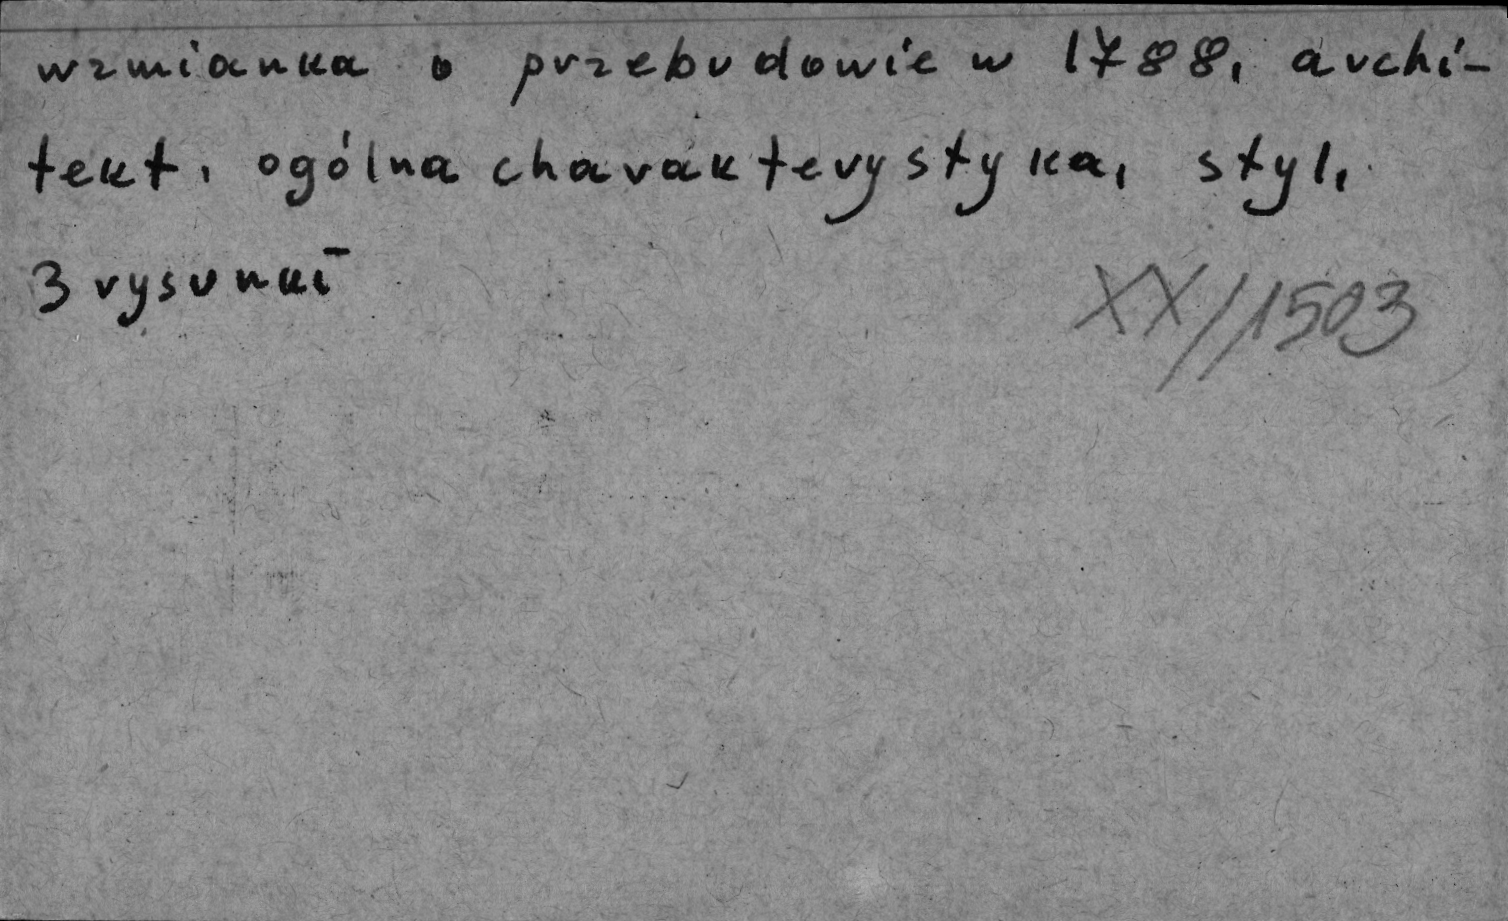 wzmianka o przebudowie w 1788, archi-
tekt, ogólna charakterystyka, styl,
3 rysunki
XX/1503